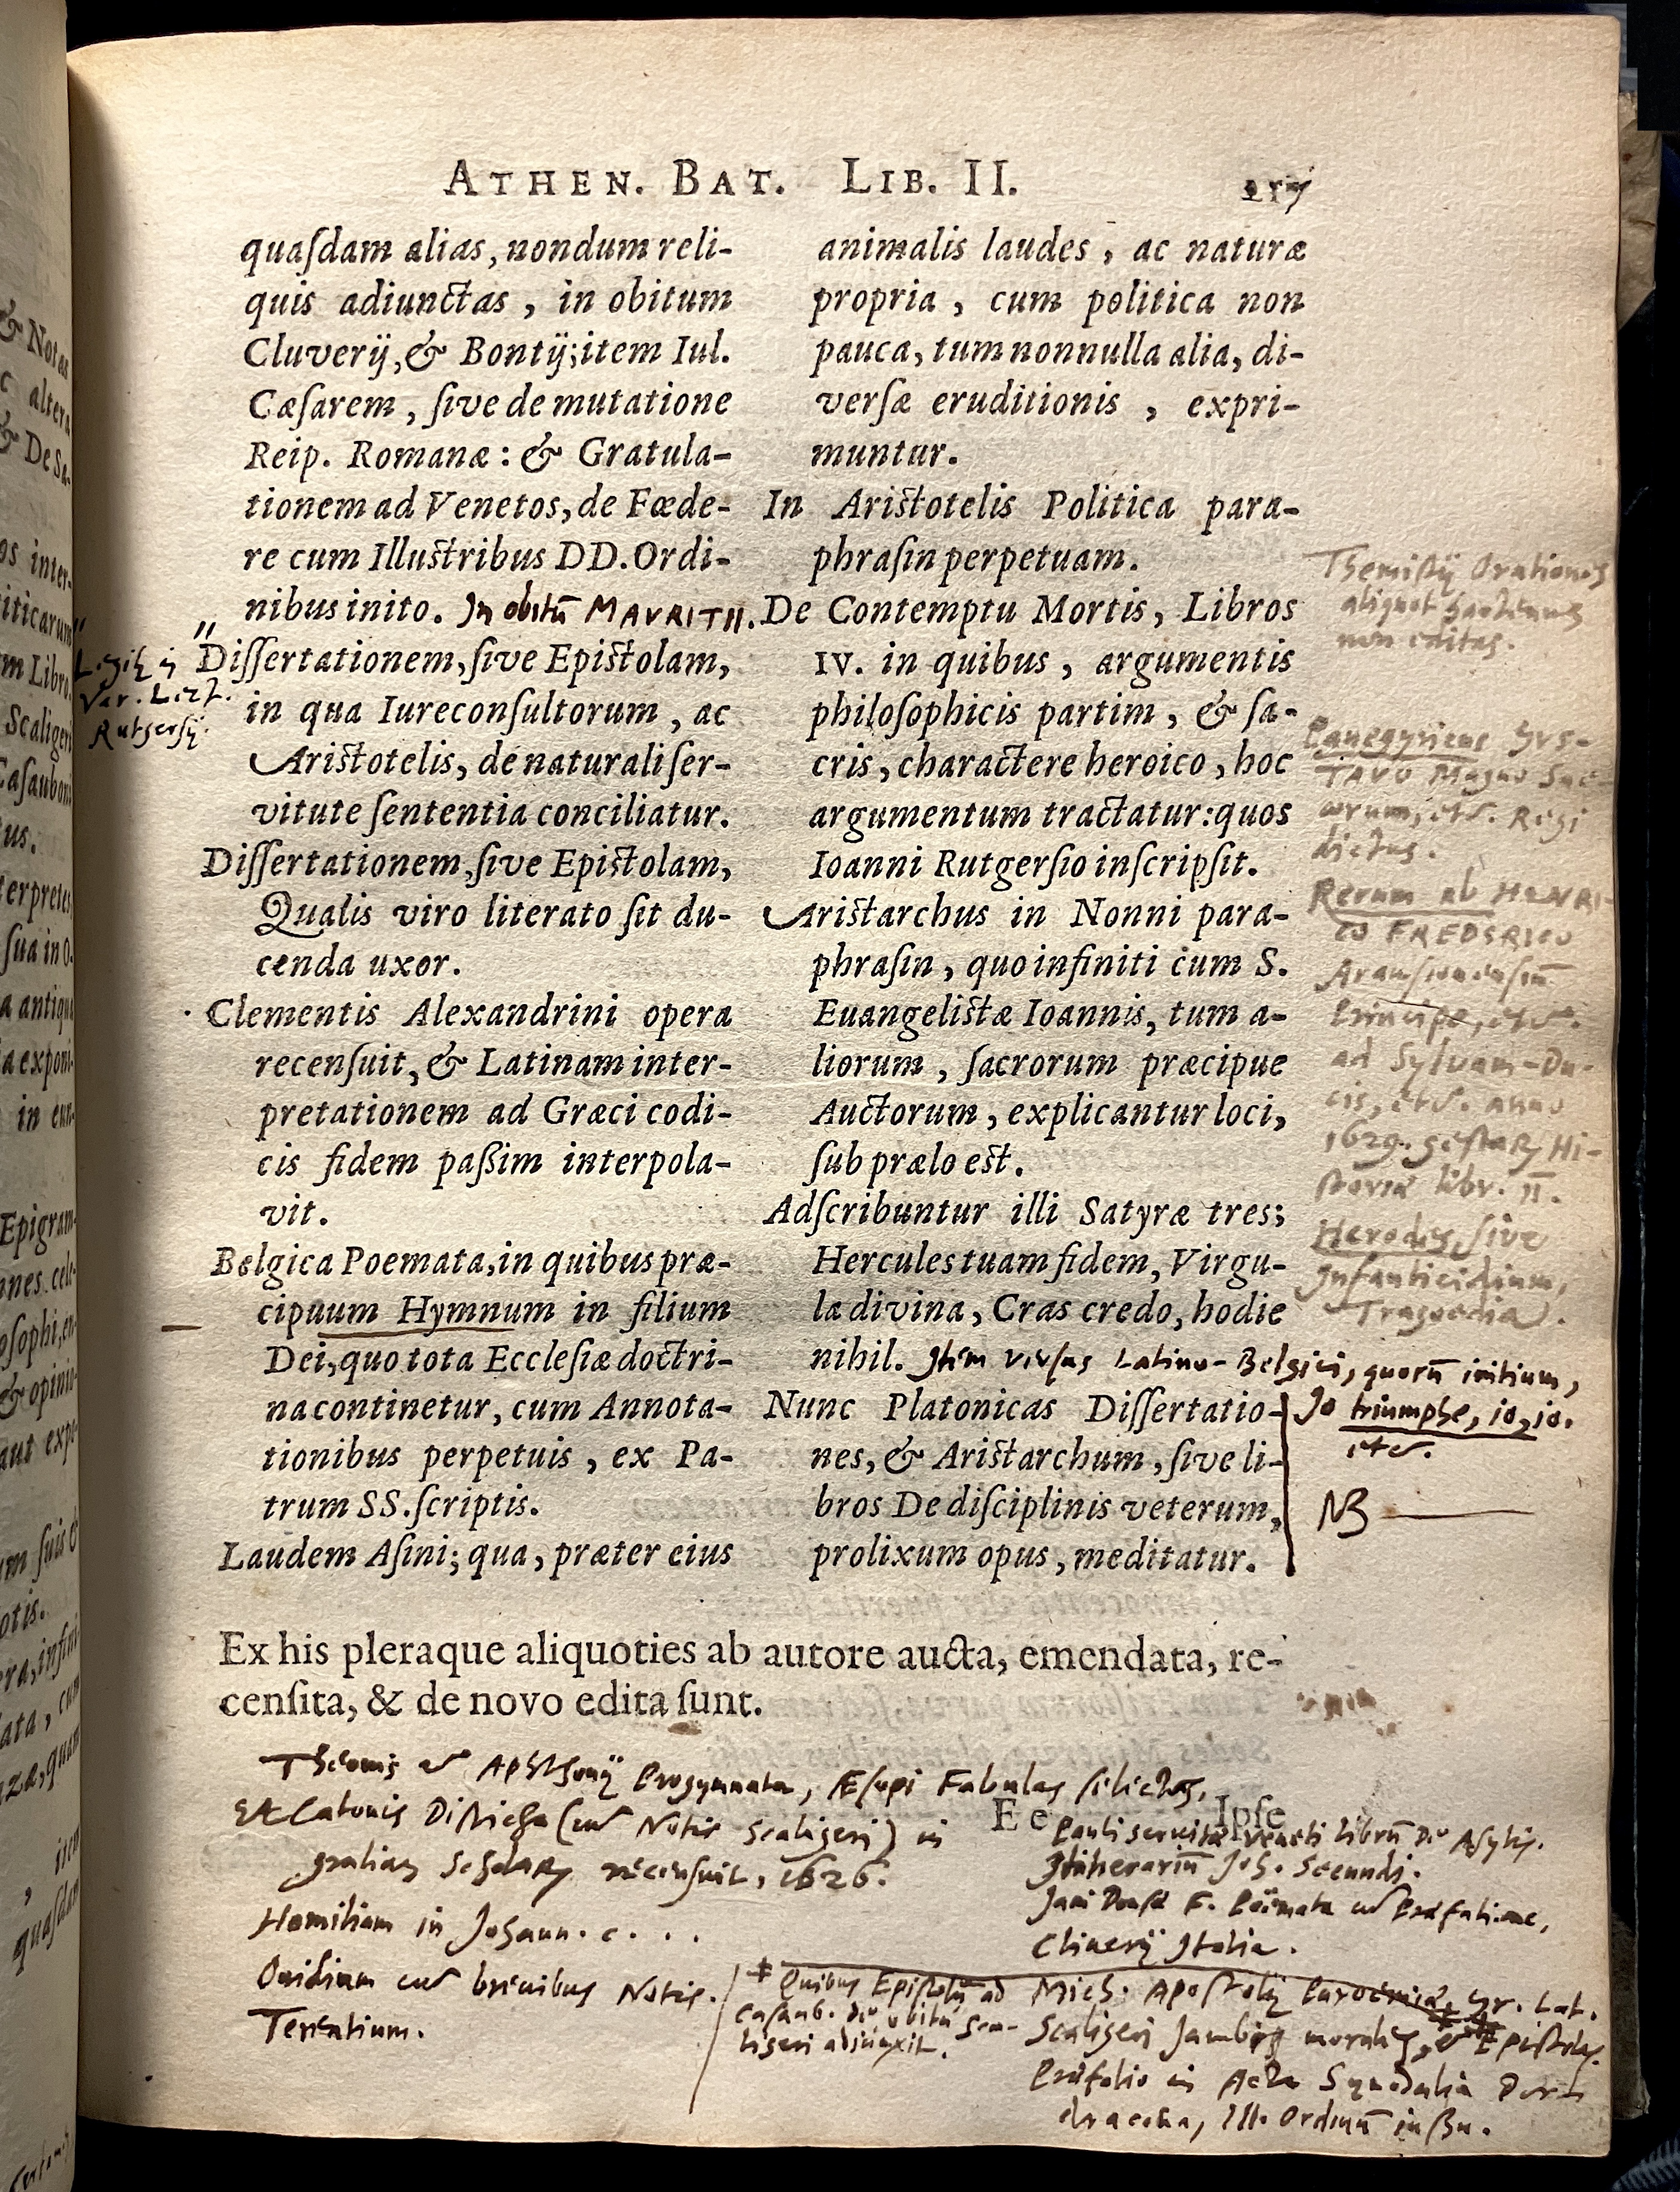 ATHEN. BAT. LIB. II.
quaſdam alias, nondum reli-
quis adiunctas, in obitum
Cluverij, & Bontij; item Iul.
Cæſarem, ſive de mutatione
Reip. Romanæ: & Gratula-
tionem ad Venetos, de Fœde-
re cum Illustribus DD. Ordi-
nibus inito. In obitū MAVRITII.
"
Legitur in
Var. Lect.
Rutgersij.
Diſſertationem, ſive Epistolam,
in qua Iureconſultorum, ac
Aristotelis, de naturali ſer-
vitute ſententia conciliatur.
Diſſertationem, ſive Epistolam,
Qualis viro literato ſit du-
cenda uxor.
Clementis Alexandrini opera
recenſuit, & Latinam inter-
pretationem ad Græci codi-
cis fidem paßim interpola-
vit.
Belgica Poemata, in quibus præ-
cipuum Hymnum in filium
Dei, quo tota Eccleſiæ doctri-
na continetur, cum Annota-
tionibus perpetuis, ex Pa-
trum SS. ſcriptis.
Laudem Aſini; qua, præter eius
animalis laudes, ac naturæ
propria, cum politica non
pauca, tum nonnulla alia, di-
verſæ eruditionis, expri-
muntur.
In Aristotelis Politica para-
phraſin perpetuam.
De Contemptu Mortis, Libros
IV. in quibus, argumentis
philoſophicis partim, & ſa-
cris, charactere heroico, hoc
argumentum tractatur: quos
Ioanni Rutgerſio inſcripſit.
Aristarchus in Nonni para-
phraſin, quo infiniti cum S.
Euangelistæ Ioannis, tum a-
liorum, ſacrorum præcipue
Auctorum, explicantur loci,
ſub prælo est.
Adſcribuntur illi Satyræ tres;
Hercules tuam fidem, Virgu-
la divina, Cras credo, hodie
nihil. Item versus Latino-Belgici, quorū initium,
Io triumphe, io, io.
etc.
Nunc Platonicas Diſſertatio-
nes, & Aristarchum, ſive li-
bros De diſciplinis veterum,
prolixum opus, meditatur.
NB
Themistij Orationes
aliquot hactenus
non editas.
Panegyricus GVS-
TAVO Magno Sue-
corum, etc. Regi
dictus.
Rerum ab HENRI-
CO FREDERICO
Arausionensiū
Principe, etc.
ad Sylvam-Du-
cis, etc. anno
1629. gestarum Hi-
storiæ libr. II.
Herodes, sive
Infanticidium,
Tragoedia.
Ex his pleraque aliquoties ab autore aucta, emendata, re-
cenſita, & de novo edita ſunt.
E e Ipſe
Theonis et Aphthonij Progymnata, Æsopi Fabulas selectas,
Et Catonis Disticha (cum Notis Scaligeri) in
gratiam Scholarum recensuit, 1626.
Homiliam in Johann. c. . .
Ovidium cum brevibus Notis.
Terentium.
Pauli servitæ Veneti librū De Asylis.
Itinerariū Joh. Secundi.
Jani Dousæ F. Poëmata cum Præfatione,
Cluverij Italia.
Mich. Apostolij Paroemia, Gr. Lat.
Scaligeri Jambos morales, et Epistolas.
Præfatio in Acta Synodalia Dord-
dracena, Ill. Ordinū iussu.
Quibus Epistolā ad
Casaub. de obitu Sca-
ligeri adiunxit.